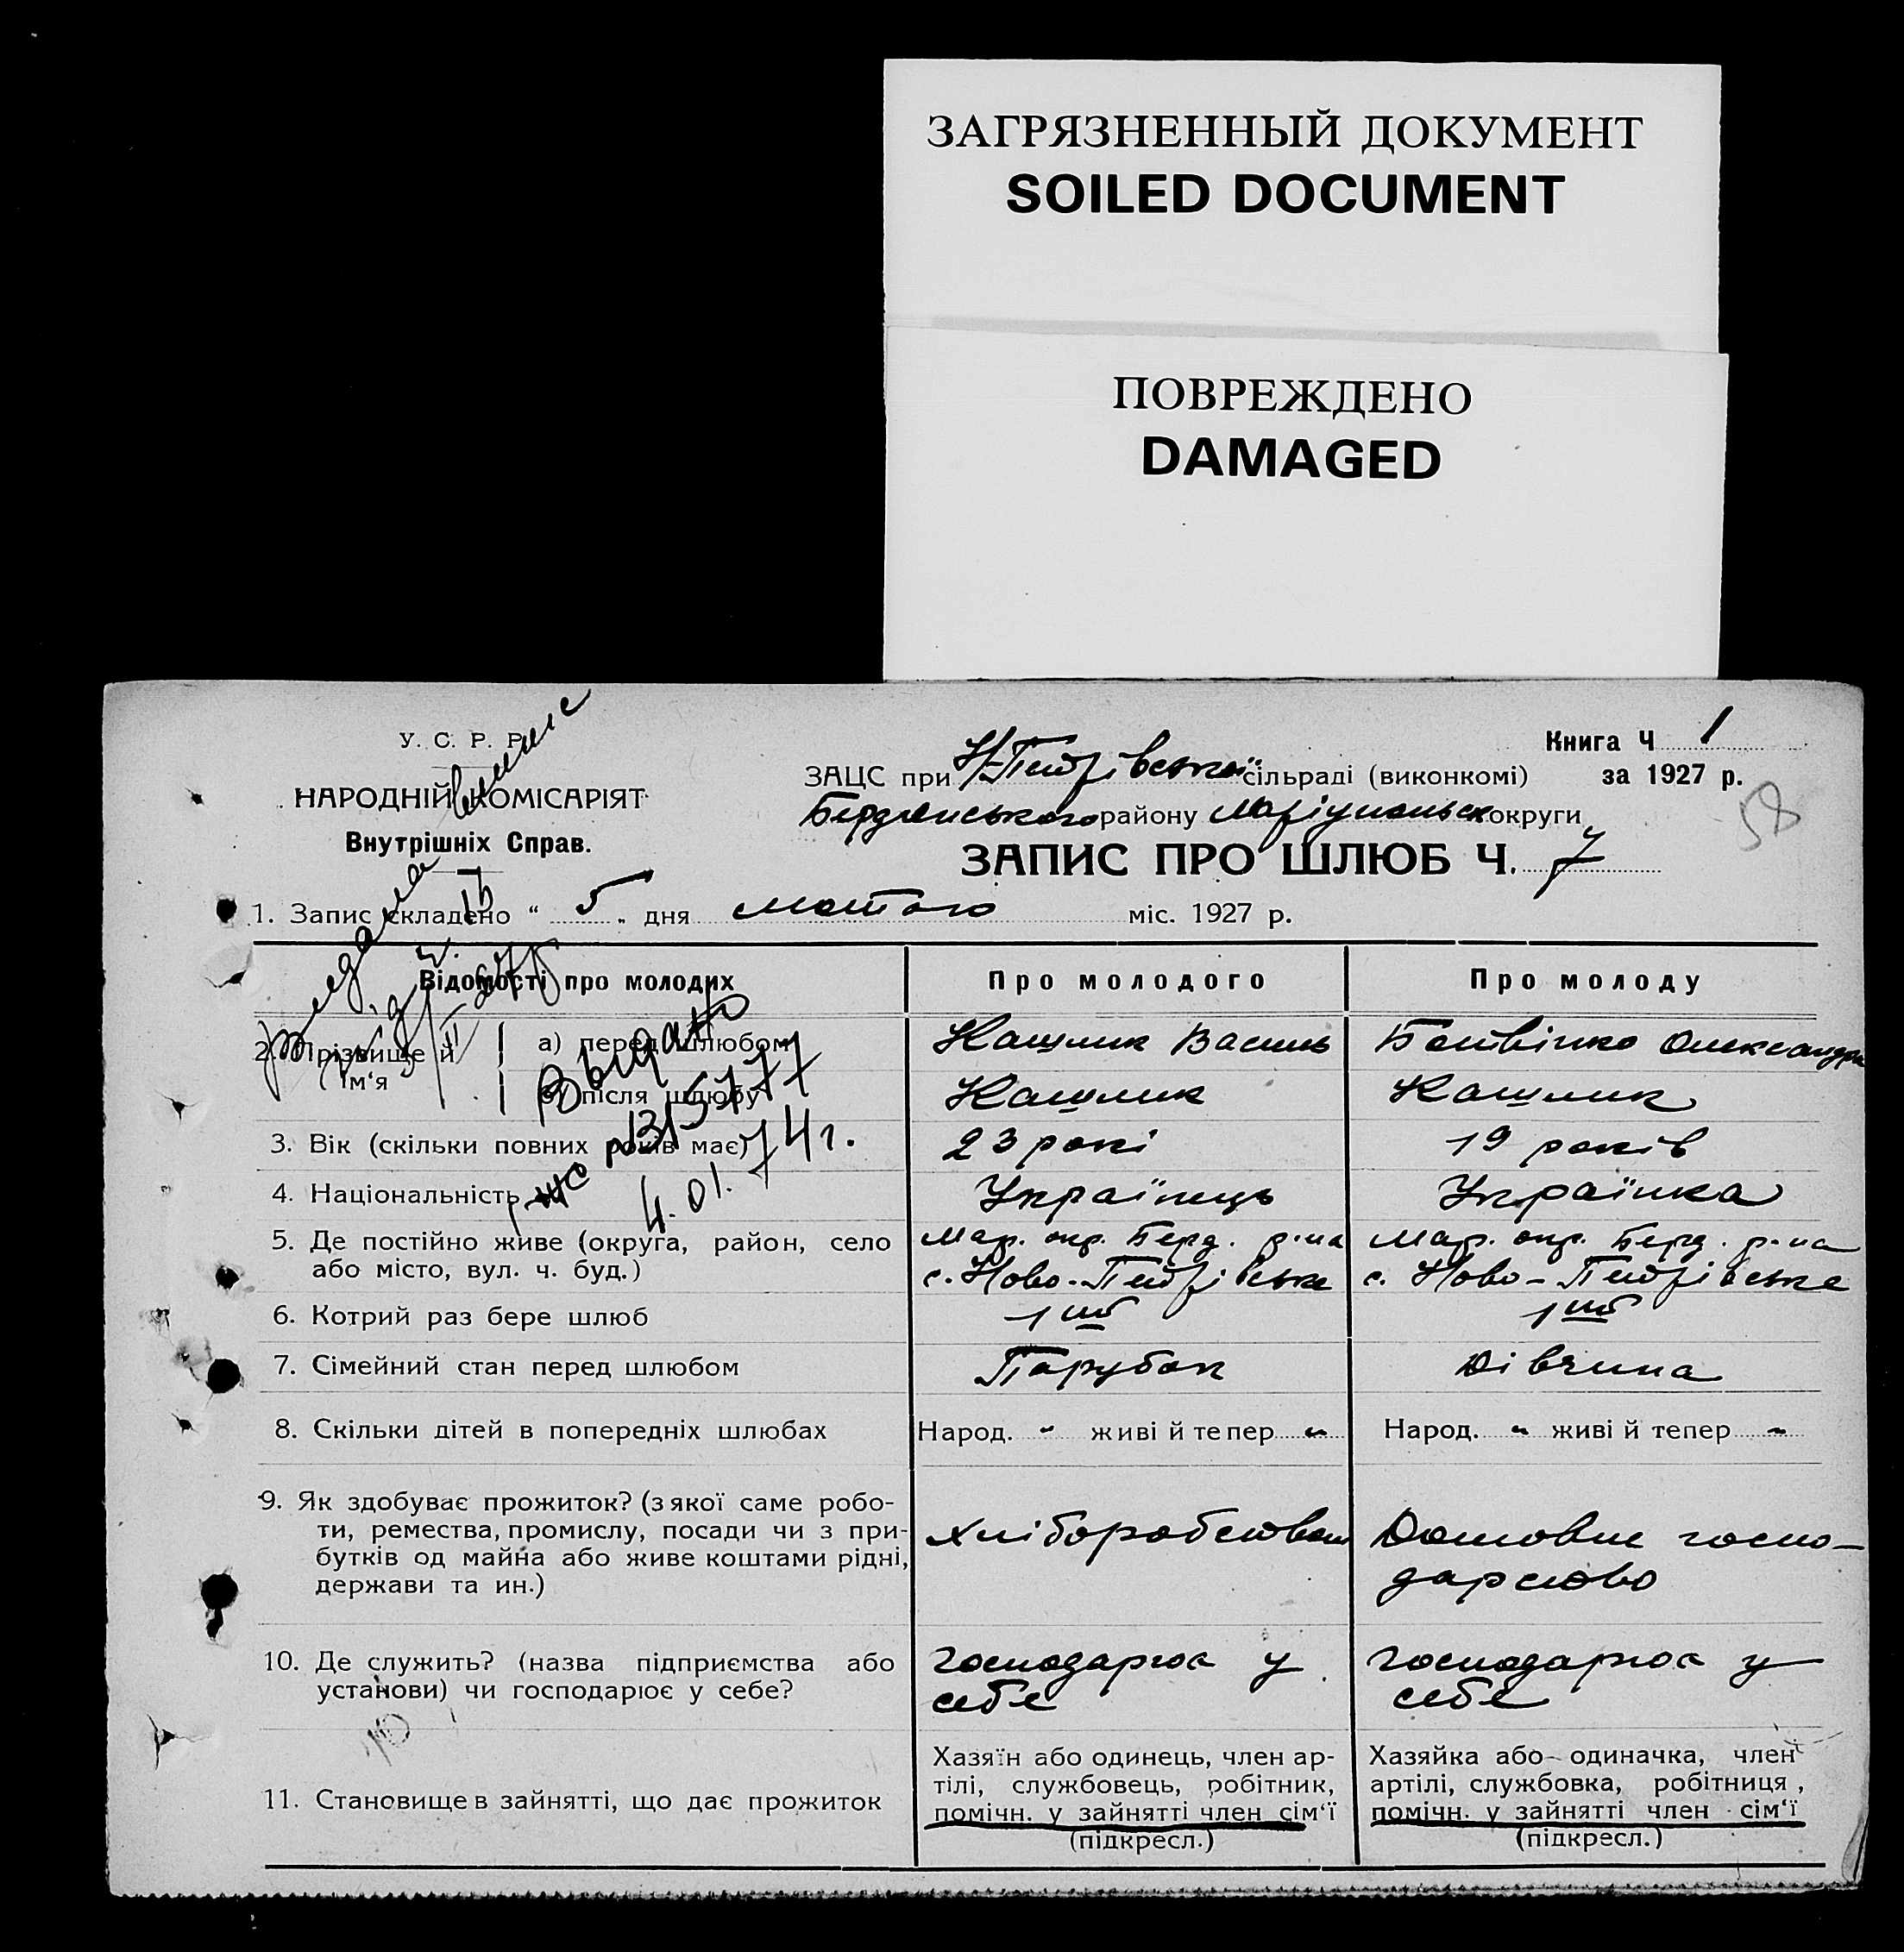 ЗАГРЯЗНЕННЫЙ ДОКУМЕНТ
SOILED DOCUMENT
ПОВРЕЖДЕНО
DAMAGED
У. С. Р. Р.
НАРОДНІЙ КОМІСАРІЯТ
Внутрішніх Справ.
Книга Ч 1
за 1927 р.
58
ЗАЦС при Н-Петрівській сільраді (виконкомі)
Бердянського району Маріупольськ округи
ЗАПИС ПРО ШЛЮБ Ч. 7
1. Запис складено “ 5 „ дня лютого міс. 1927 р.
Відомості про молодих
Про молодого
Про молоду
2. Прізвище й ім‘я
а) перед шлюбом
Кашлик Василь
Ботвінко Олександра
б) після шлюбу
Кашлик
Кашлик
Выдано
315777
4.01.74г.
3. Вік (скільки повних років має)
23 роки
19 років
4. Національність
Українець
Українка
5. Де постійно живе (округа, район, село
або місто, вул. ч. буд.)
Мар. окр. Берд. р-на
с. Ново-Петрівське
Мар. окр. Берд. р-на
с. Ново-Петрівське
6. Котрий раз бере шлюб
1ий
1ий
7. Сімейний стан перед шлюбом
Парубок
Дівчина
8. Скільки дітей в попередніх шлюбах
Народ. - живі й тепер -
Народ. - живі й тепер -
9. Як здобуває прожиток? (з якої саме робо-
ти, ремества, промислу, посади чи з при-
бутків од майна або живе коштами рідні,
держави та ин.)
хліборобством
Домовне госпо-
дарство
10. Де служить? (назва підприємства або
установи) чи господарює у себе?
господарює у
себе
господарює у
себе
11. Становище в зайнятті, що дає прожиток
Хазяїн або одинець, член ар-
тілі, службовець, робітник,
помічн. у зайнятті член сім‘ї
(підкресл.)
Хазяйка або одиначка, член
артілі, службовка, робітниця,
помічн. у зайнятті член сім‘ї
(підкресл.)